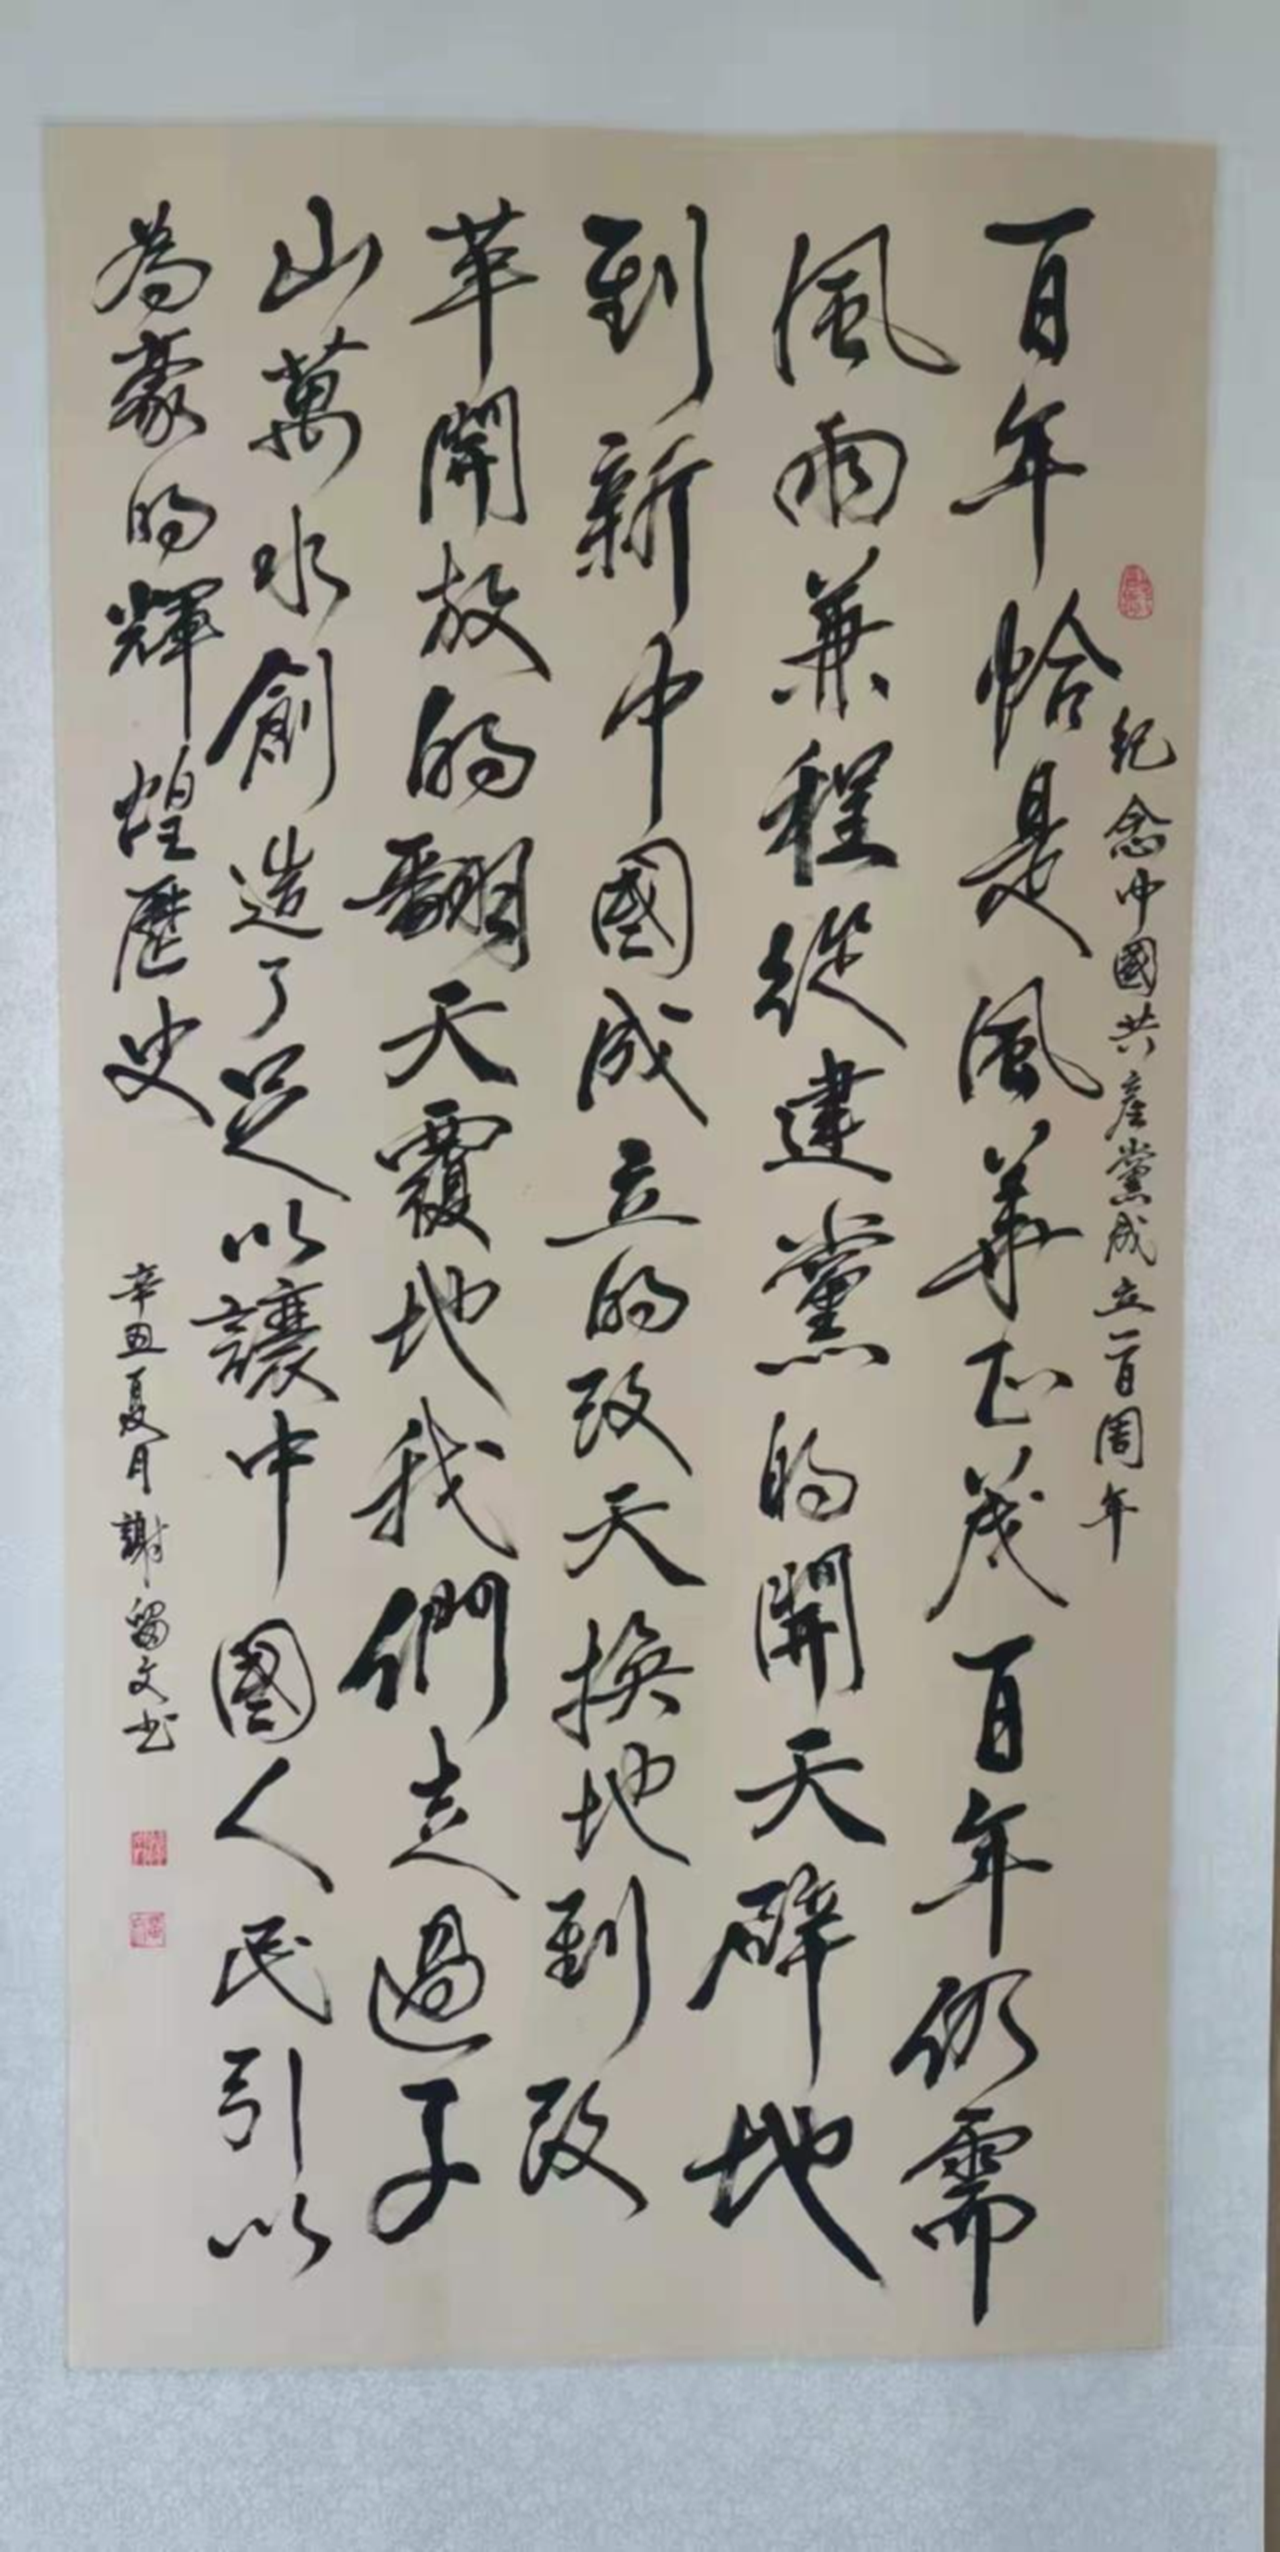 紀念中國共產黨成立一百周年
百年恰是風華正茂百年仍需
風雨兼程從建黨的開天辟地
到新中國成立的改天換地到改
革開放的翻天覆地我們走過千
山萬水創造了足以讓中國人民引以
為豪的輝煌歷史
辛丑夏月謝留文书